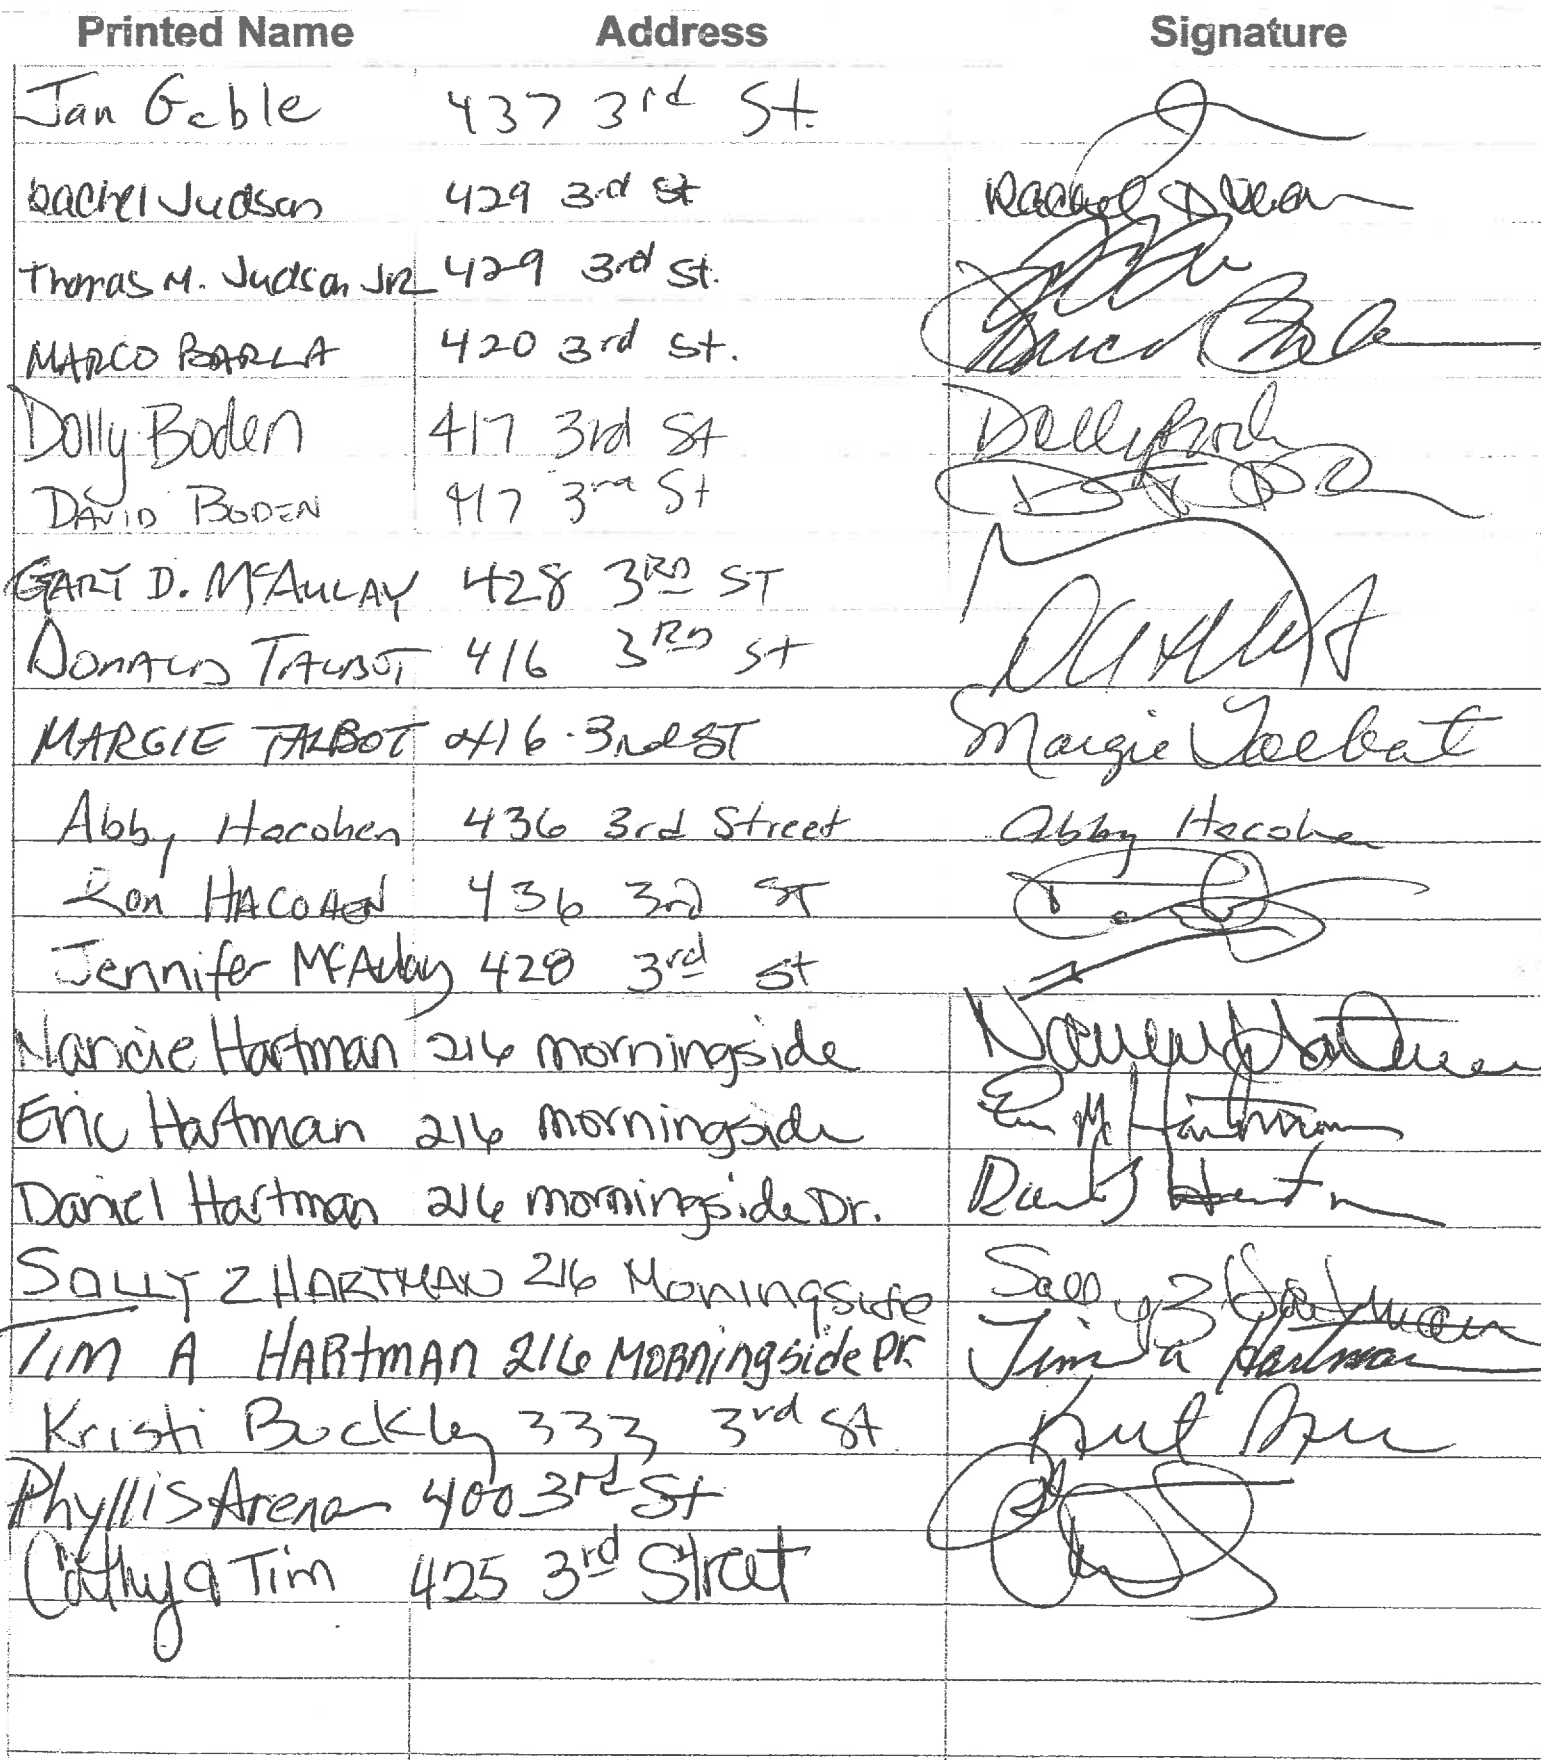 Printed Name Address Signature
Jan Gable 437 3rd St.
Rachel Judson 429 3rd St Rachel Judson
Thomas M. Judson JR 429 3rd St.
MARCO BARLA 420 3rd St. Marco Barla
Dolly Boden 417 3rd St Dolly Boden
DAVID BODEN 417 3rd St
GARY D. McAULAY 428 3RD ST
DONALD TALBOT 416 3RD St
MARGIE TALBOT 416 - 3rd ST Margie Talbot
Abby Hacohen 436 3rd Street Abby Hacohen
Ron HACOHEN 436 3rd ST
Jennifer McAulay 428 3rd St
Nancie Hartman 216 morningside Hartman
Eric Hartman 216 morningside Eric M Hartman
Daniel Hartman 216 morningside Dr. Hartman
SALLY Z HARTMAN 216 Moningside Sally Z Hartman
TIM A HARTMAN 216 MORningside Dr. Tim A Hartman
Kristi Buckley 333 3rd St
Phyllis Arena 400 3rd St
Cathy & Tim 425 3rd Street